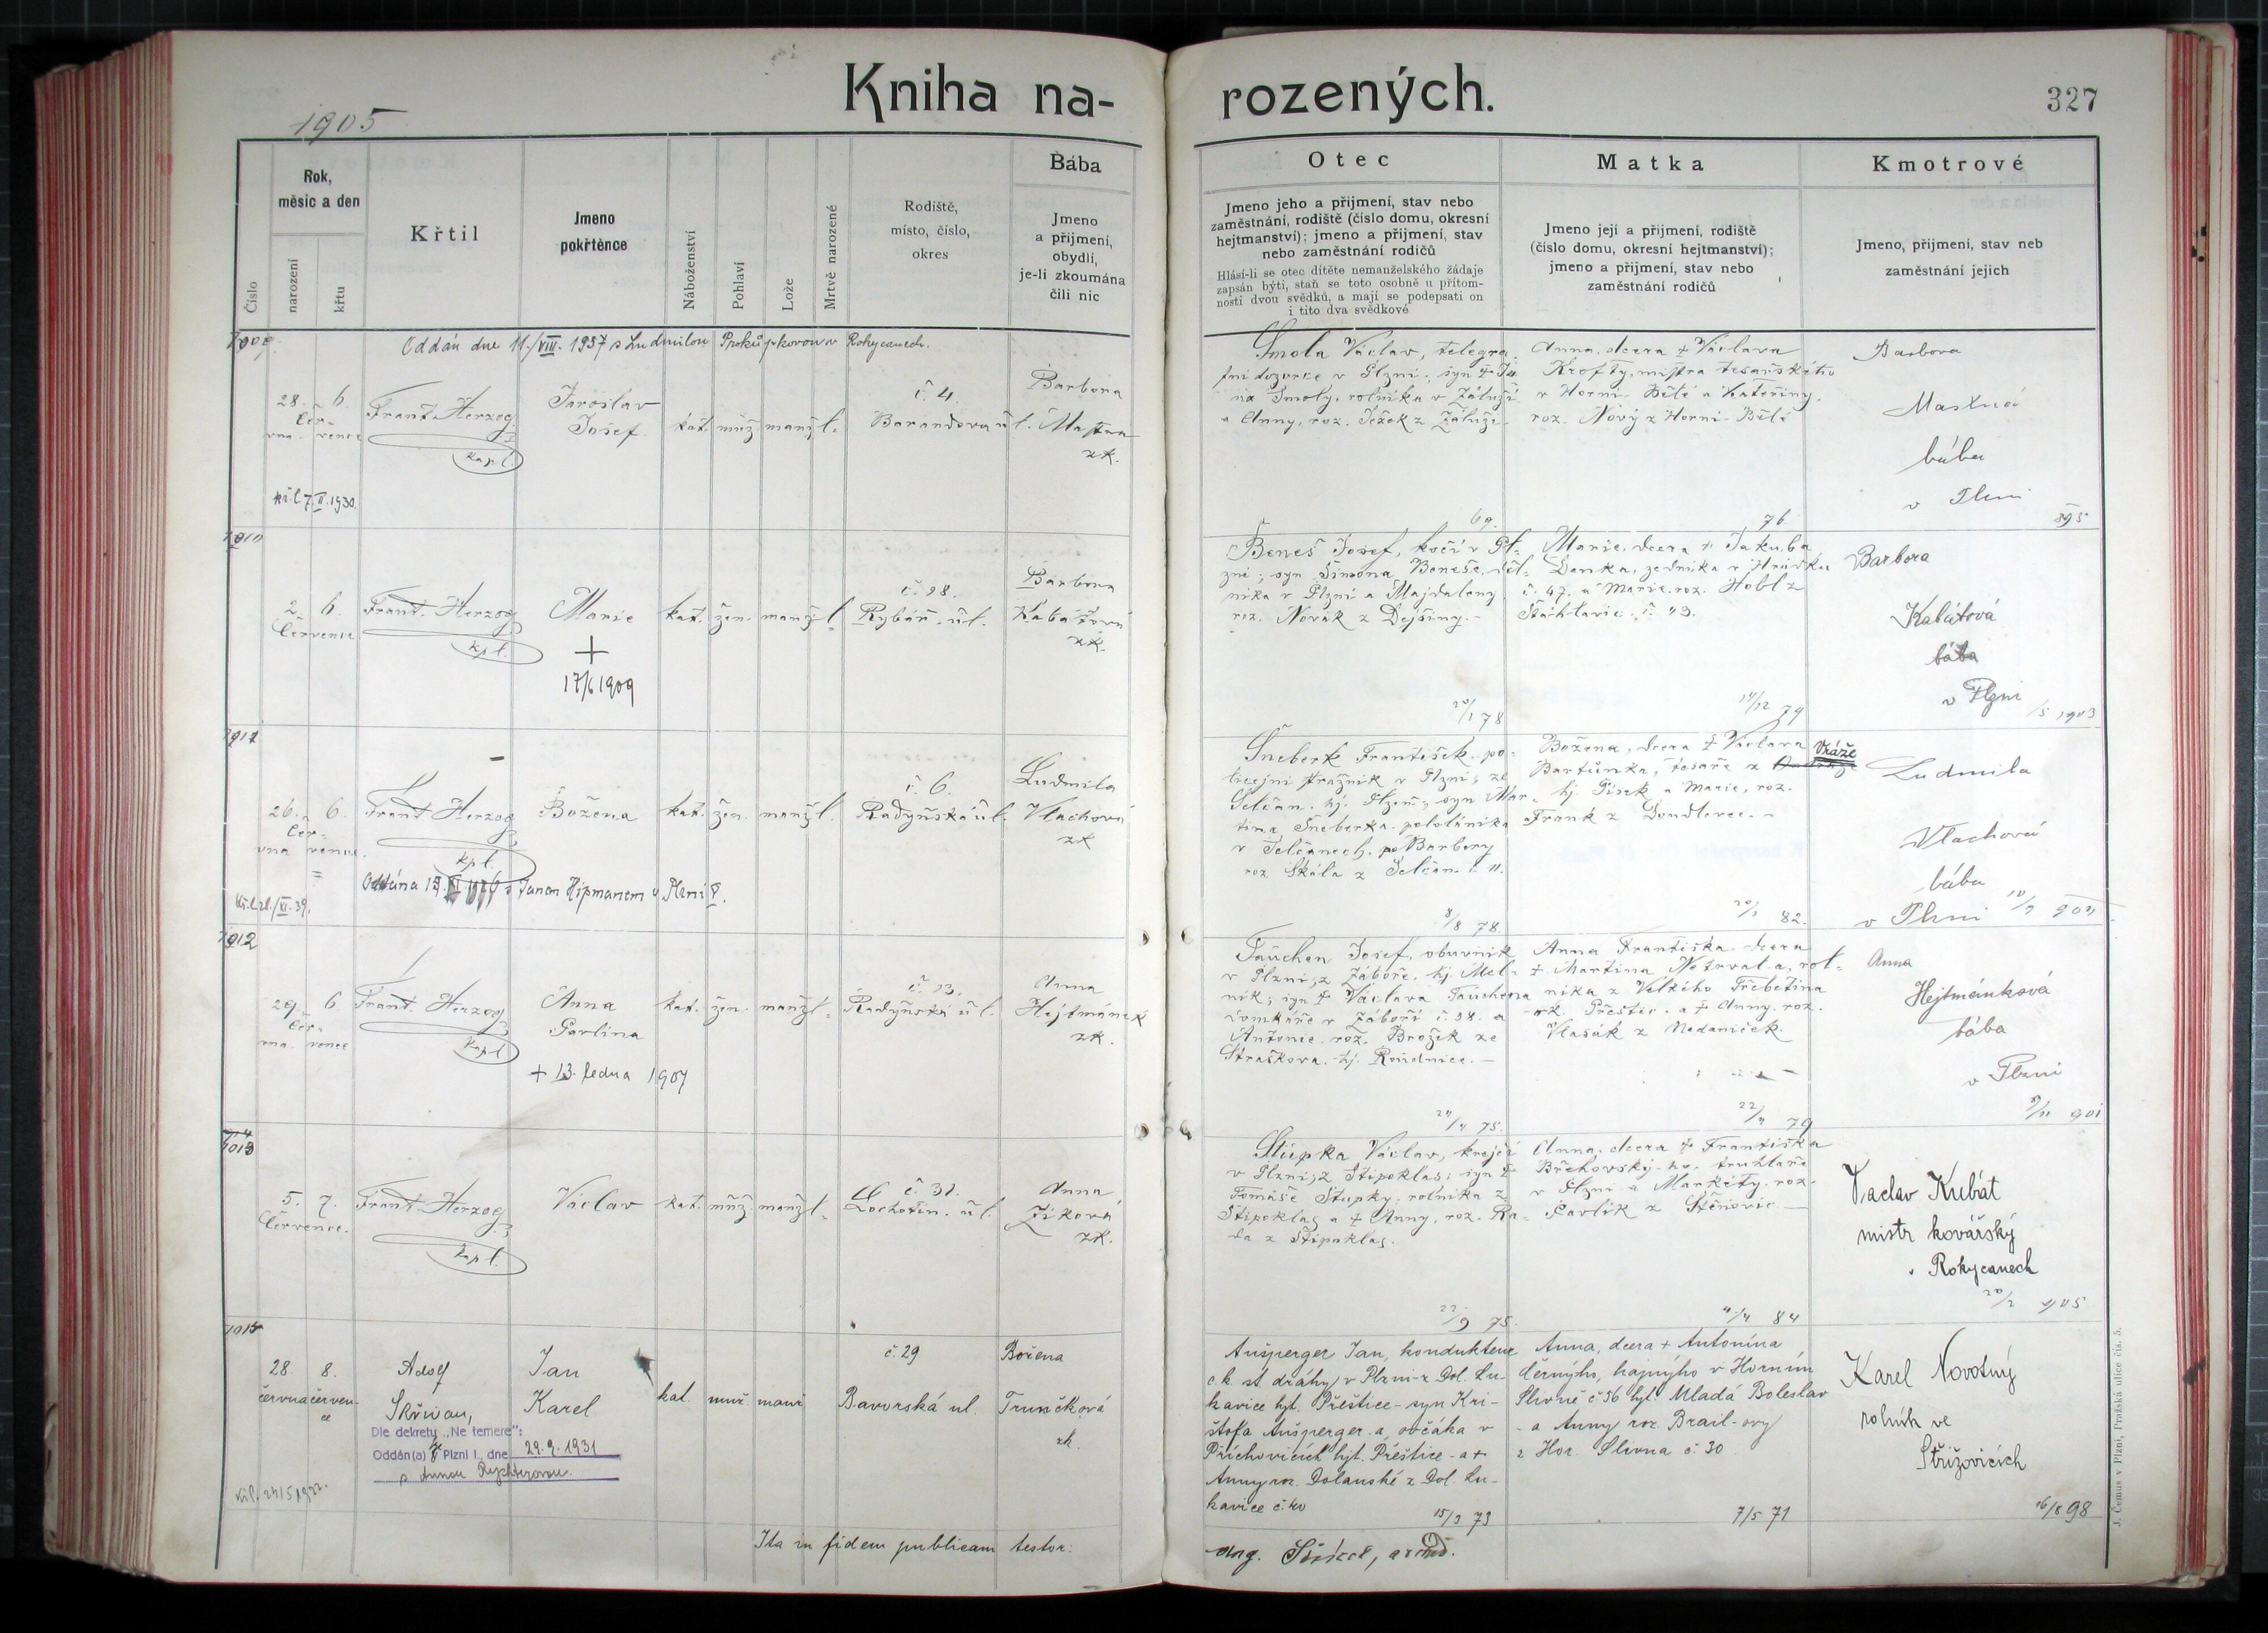 1905
Kniha na-
rozených.
327
Číslo
Rok,
měsíc a den
narození
křtu
Křtil
Jmeno
pokřtěnce
Náboženství
Pohlaví
Lože
Mrtvě narozené
Rodiště,
místo, číslo,
okres
Bába
Jmeno
a přijmení,
obydlí,
je-li zkoumána
čili nic
Otec
Jmeno jeho a přijmení, stav nebo
zaměstnání, rodiště (číslo domu, okresní
hejtmanství); jmeno a přijmení, stav
nebo zaměstnání rodičů
Hlásí-li se otec dítěte nemanželského žádaje
zapsán býti, staň se toto osobně u přítom-
nosti dvou svědků, a mají se podepsati on
i tito dva svědkové
Matka
Jmeno její a přijmení, rodiště
(číslo domu, okresní hejtmanství);
jmeno a přijmení, stav nebo
zaměstnání rodičů
Kmotrové
Jmeno, přijmení, stav neb
zaměstnání jejich
Oddán dne 11./VIII. 1937 s Ludmilou Prokůpkovou v Rokycanech.
28. 6.
Čer- 
vna. vence
Frant. Herzog
kapl.
Jaroslav
Josef.
kat. muž. manžl.
č. 4.
Barandova úl.
Barbora
Mastna
zk.
kř. l. 7. II. 1930.
Smola Václav, telegra-
fní dozorce v Plzni; syn + Ja
na Smoly, rolníka v Záluží
a Anny, roz. Ježek z Záluží.
69.
Anna, dcera + Václava
Krofty, mistra tesařského
v Horní Bělé a Kateřiny,
roz. Nový z Horní Bělé
76
Barbora
Mastná
bába
v Plzni
895
2. 6.
Července
Frant. Herzog
kpl.
Marie
+
17/6 1909
kat. žen. manžl.
č. 28.
Rybář. úl.
Barbora
Kabátová
zk.
Beneš Josef, kočí v Pl-
zni; syn Šimona Beneše, děl-
níka v Plzni a Majdaleny
roz. Novák z Dejšiny.-
20/1 78
Marie, dcera + Jakuba
Denka, zedníka v Hrádku
č. 47. a Marie, roz. Hobl z
Šťáhlavic č. 43.
14/12 79
Barbora
Kabátová
bába
v Plzni
/5 1903
26. 6.
Čer-
vna vence.
Frant. Herzog
kpl.
Božena
kat. žen. manžl.
č. 6.
Radyňská úl.
Ludmila
Vlachová
zk
s Janem Hipmanem v Plzni
Šneberk František, po-
licejní strážník v Plzni; ze
Selčan. hj. Plzeň; syn Mar-
tina Šneberka, pololáníka
v Selčanech. po Barbory
roz. Skála z Selčan č. 11.
8/8 78
Božena, dcera + Václava
Bartůňka, tesaře z Vráže
hj. Písek a Marie, roz.
Frank z Doudlevec.-
82.
Ludmila
Vlachová
bába
v Plzni
1912
29. 6
Čer-
vna. vence
Frant. Herzog
kapl
Anna
Pavlína
+ 13. ledna 1907
kat. žen. manžl.
č. 13.
Radyňská úl.
Anna
Hejtmánek
zk.
Tauchen Josef, obuvník
v Plzni; z Záboře, hj. Měl-
ník; syn + Václava Tauchena
domkáře v Záboří č. 28. a
Antonie roz. Brožek ze
Straškova. hj. Roudnice.-
24/4 75.
Anna Františka dcera
+ Martina Netrval-a, rol-
níka z Velkého Třebětína
ok. Přeštic. a + Anny. roz.
Vlasák z Nedaniček.
79
Anna
Hejtmánková
bába
v Plzni
901
5. 7.
Července.
Frant. Herzog
kapl.
Václav
kat. muž. manžl.
č. 31.
Lochotín. úl.
Anna
Ziková
zk.
Stupka Václav, krejčí
v Plzni; z Štipoklas; syn +
Tomáše Stupky, rolníka z
Štipoklas a + Anny, roz. Ra-
da z Štipoklas.
75.
Anna, dcera + Františka
Břehovský-ho. truhláře
v Plzni a Markéty, roz.
Pavlík z Štěnovic.
84
Vaclav Kubát
mistr kovářský
v Rokycanech
28. 8.
června červen-
ce
Adolf
Skřivan,
Dle dekretu „Ne temere“:
Oddán(a) v Plzni I., dne 29.9.1931
s Annou Rychterovou.
Jan
Karel
kat. muž. manž
č. 29
Bavorská ul.
Božena
Trunečková
zk.
Aušperger Jan, kondukteur
c.k. st. dráhy v Plzni-z Dol. Lu-
kavice hjt. Přeštice-syn Kri-
štofa Aušperger-a, ovčáka v
Příchovicích hjt. Přeštice-a +
Anny roz. Dolanské z Dol. Lu-
kavice č. 40
15/3 73
Anna, dcera + Antonína
Černýho, hajnýho v Horním
Slivně č 56 hjt. Mladá Boleslav
- a Anny roz. Brail-ovy
z Hor. Slivna č. 30
7/5 71
Karel Novotný
rolník ve
Střížovicích
16/8 98
Ita in fidem publicam testor:
J. Čemus v Plzni, Pražská ulice čís. 5.